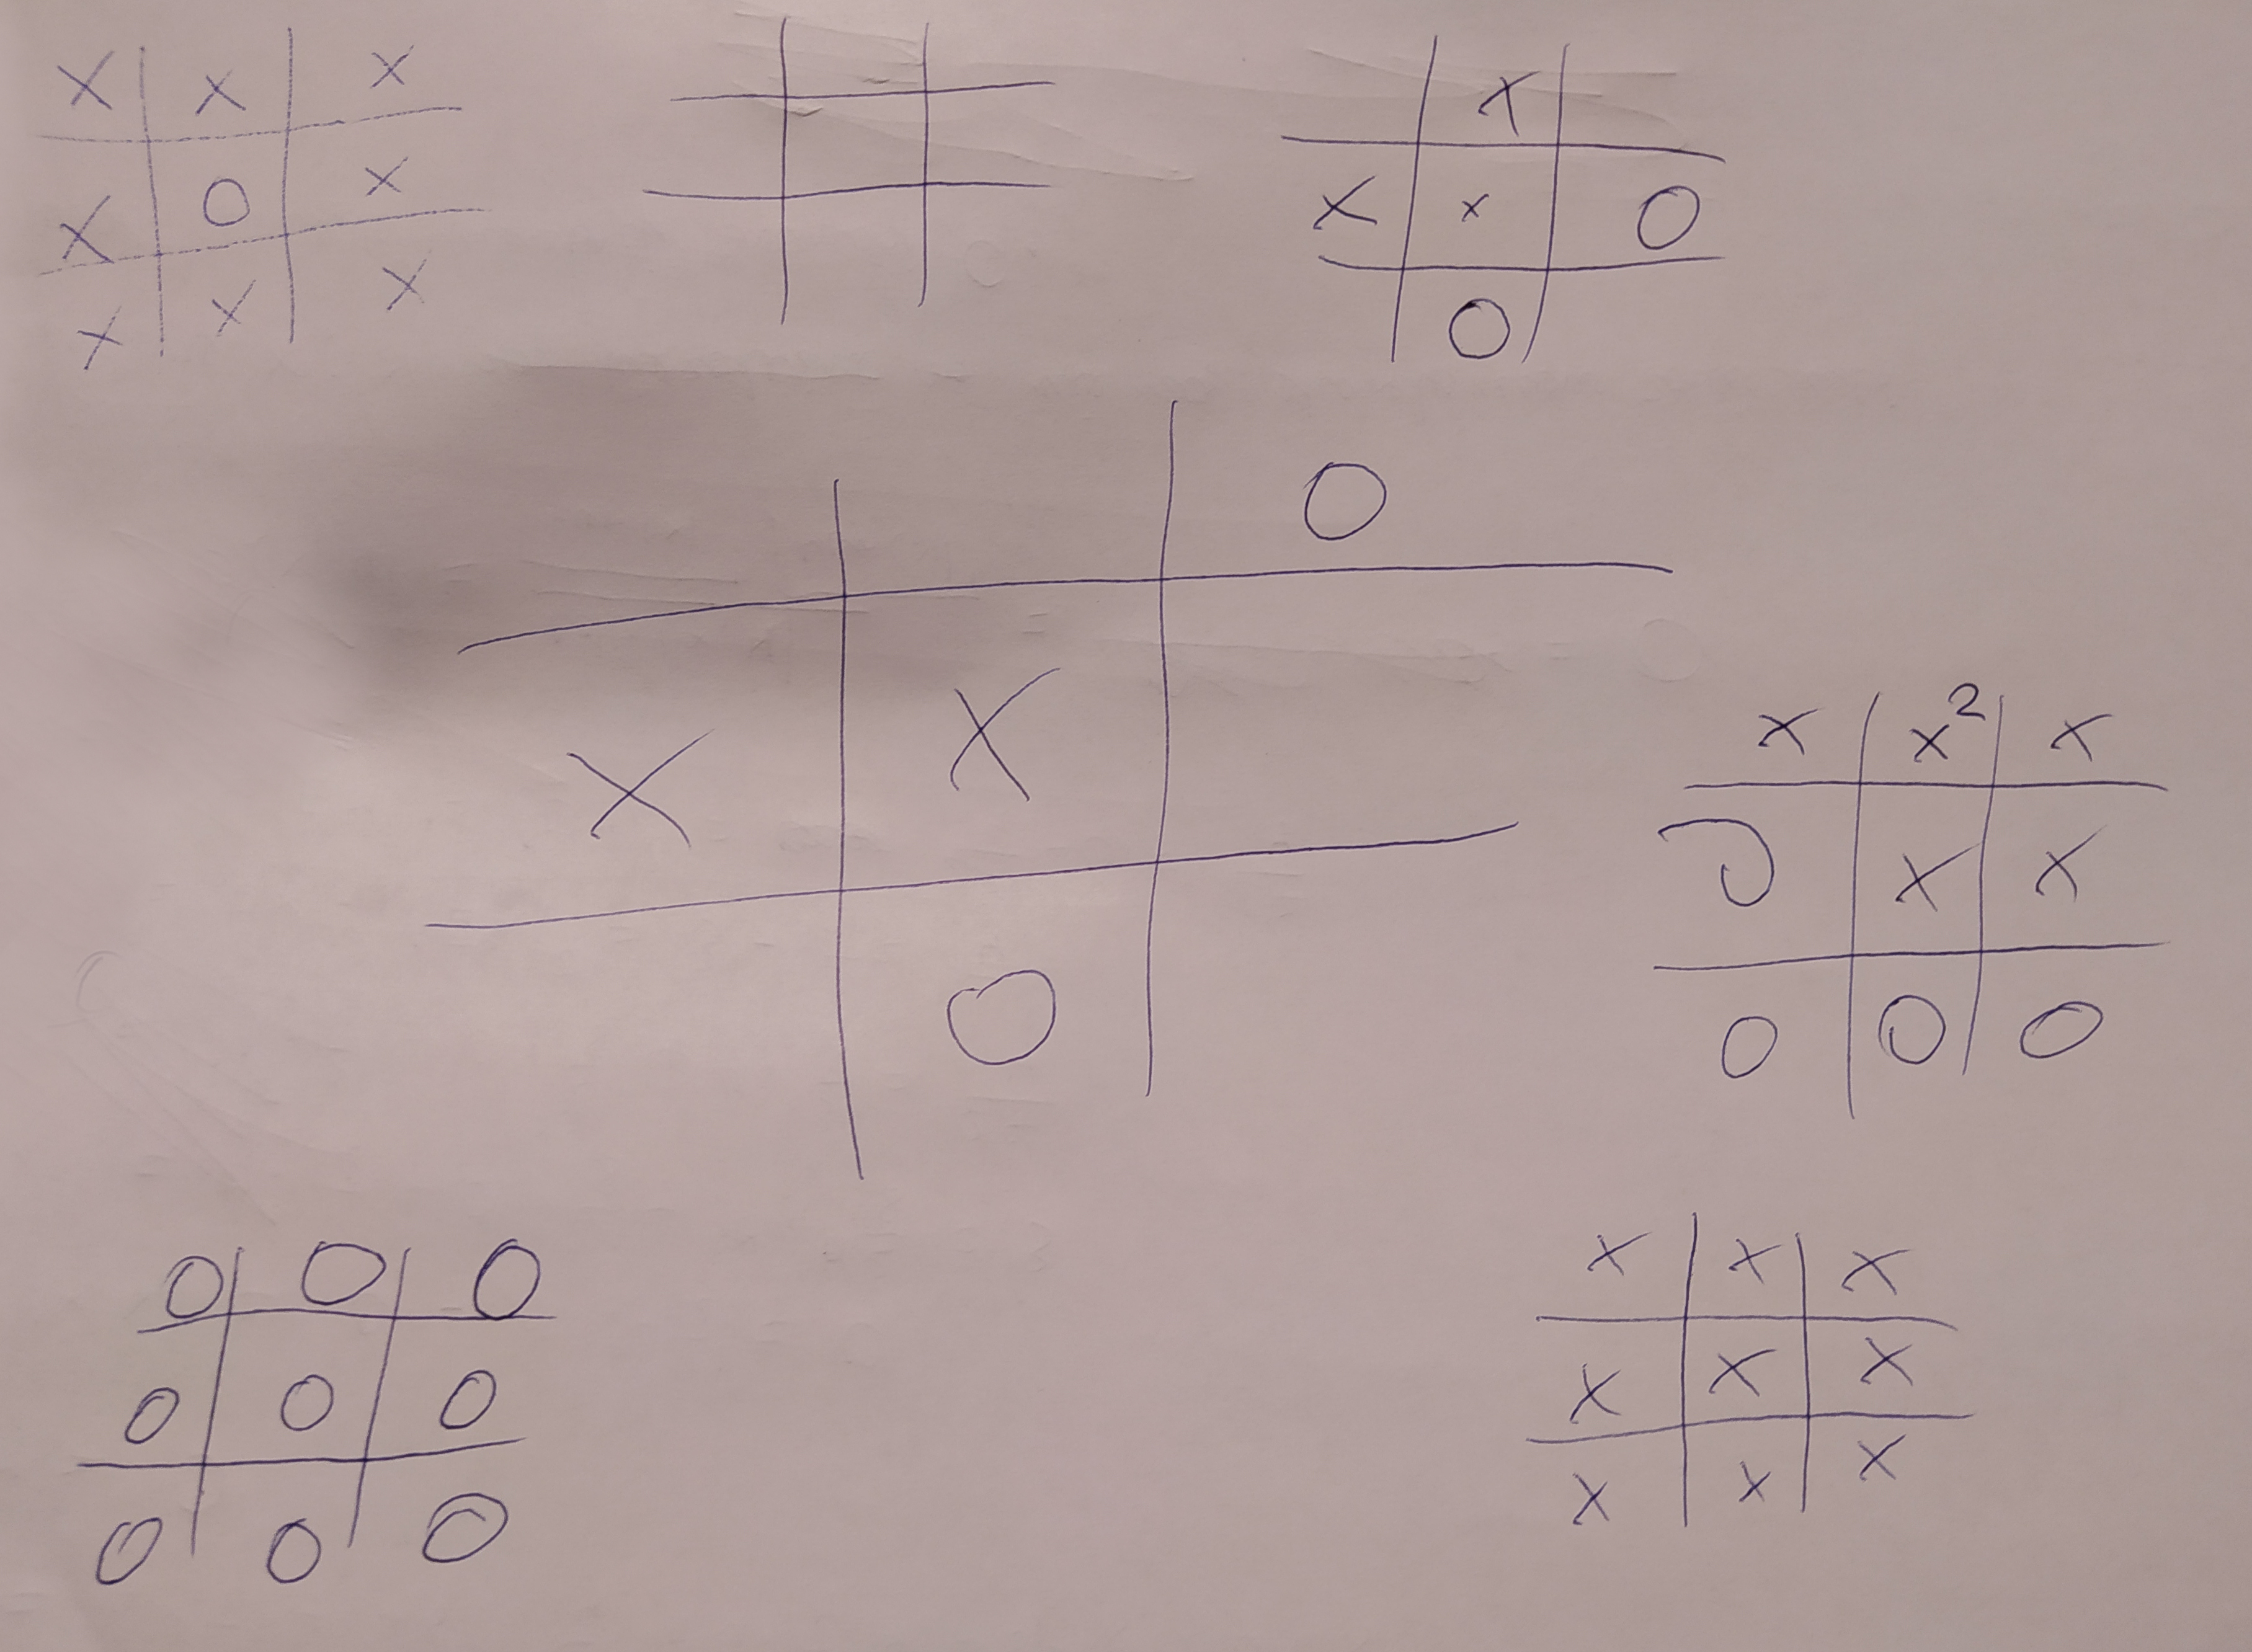 X X X
X O X
X X X
X
X X O
O
O
X X
O
x x² x
O X X
O O O
O O O
O O O
O O O
X X X
X X X
X X X